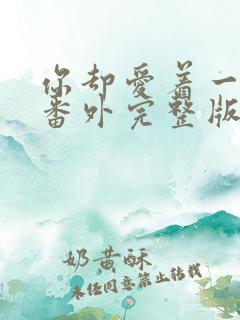 你却爱着一
番外完整版
奶黄酥
未经同意禁止转载